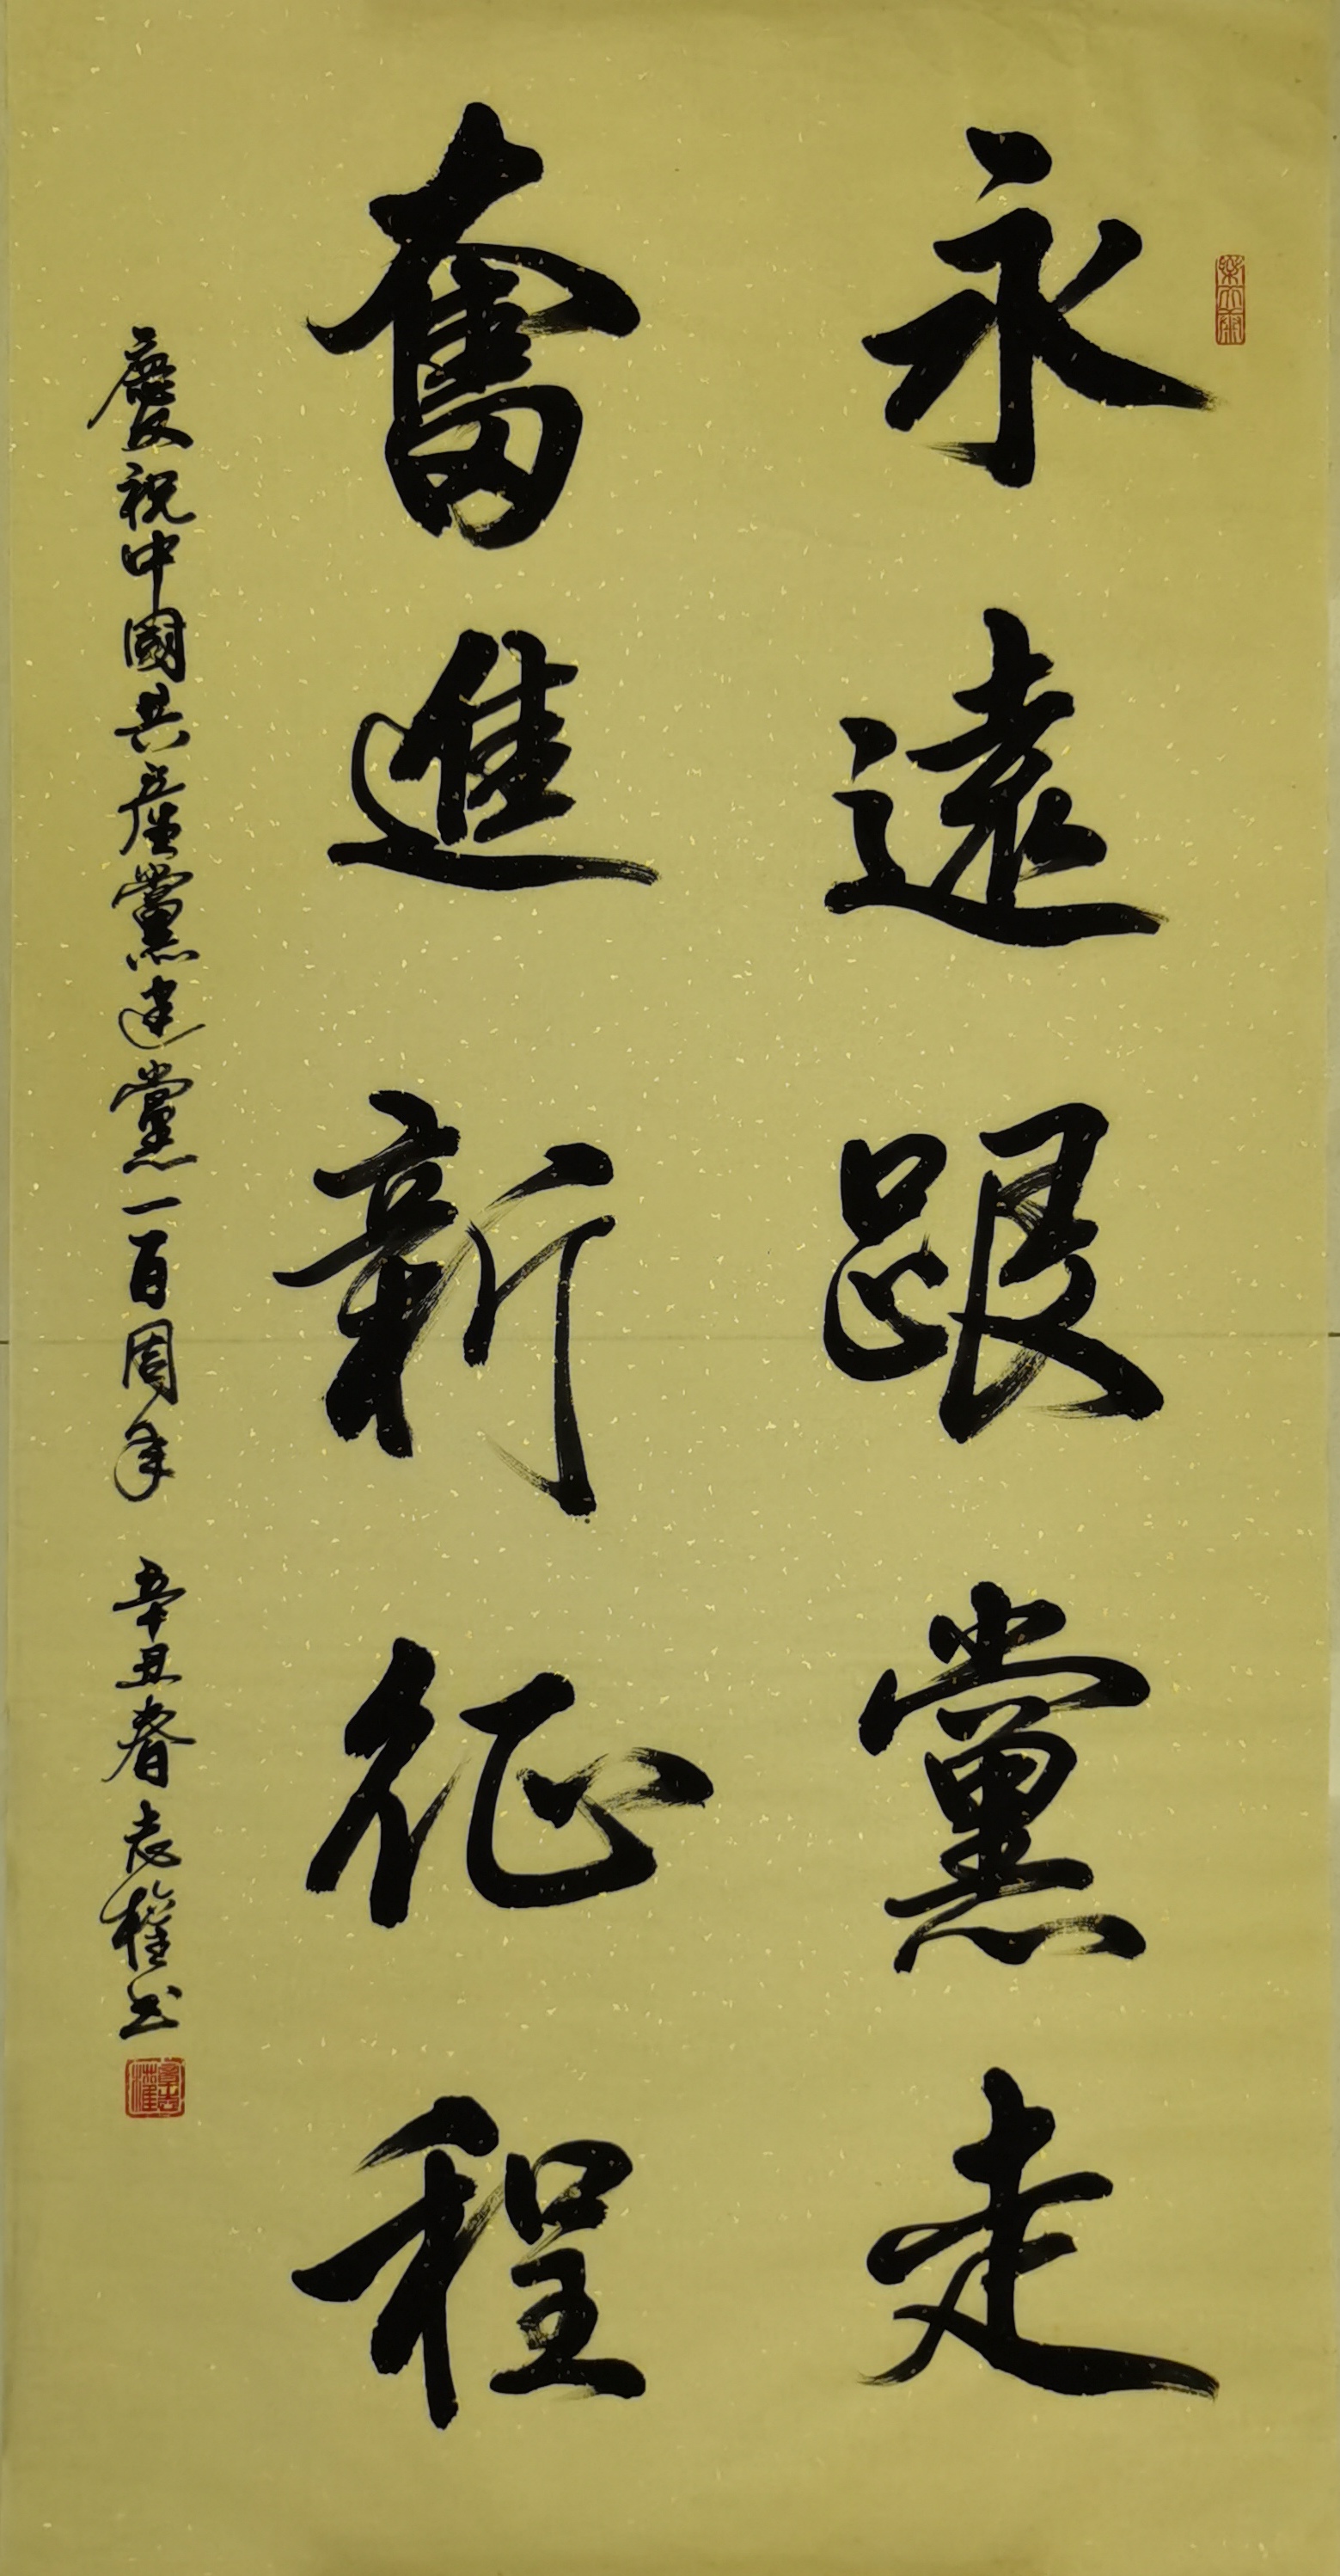 永遠跟黨走
奮進新征程
慶祝中國共產黨建黨一百周年 辛丑春 志權书